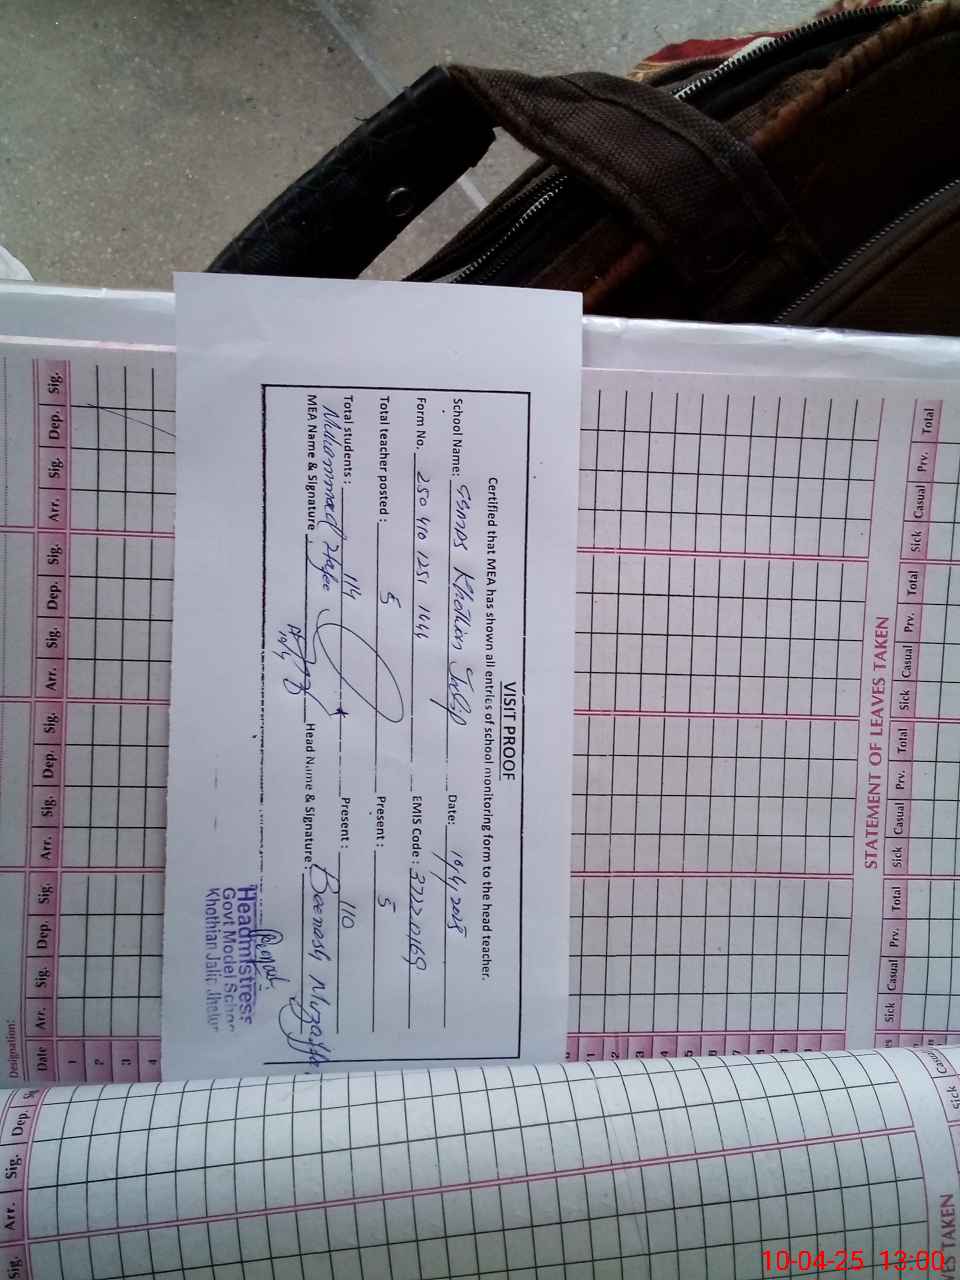 VISIT PROOF
Certified that MEA has shown all entries of school monitoring form to the head teacher.
School Name: GGMPS Khothian Jalip Date: 10/4/2025
Form No. 250 410 1251 1444 EMIS Code: 37220169
Total teacher posted: 5 Present: 5
Total students: 114 Present: 110
MEA Name & Signature Muhammad Head Name & Signature: Beenash Muzaffar
10/4
Headmistress
Govt Model School
Khothian Jalip Jhelum
STATEMENT OF LEAVES TAKEN
Sick Casual Prv. Total Sick Casual Prv. Total Sick Casual Prv. Total Sick Casual Prv. Total
Designation:
Date Arr. Sig. Dep. Sig. Arr. Sig. Dep. Sig. Arr. Sig. Dep. Sig. Arr. Sig. Dep. Sig.
1
2
3
4
Sig. Arr. Sig. Dep.
Sick Casual
10-04-25 13:00